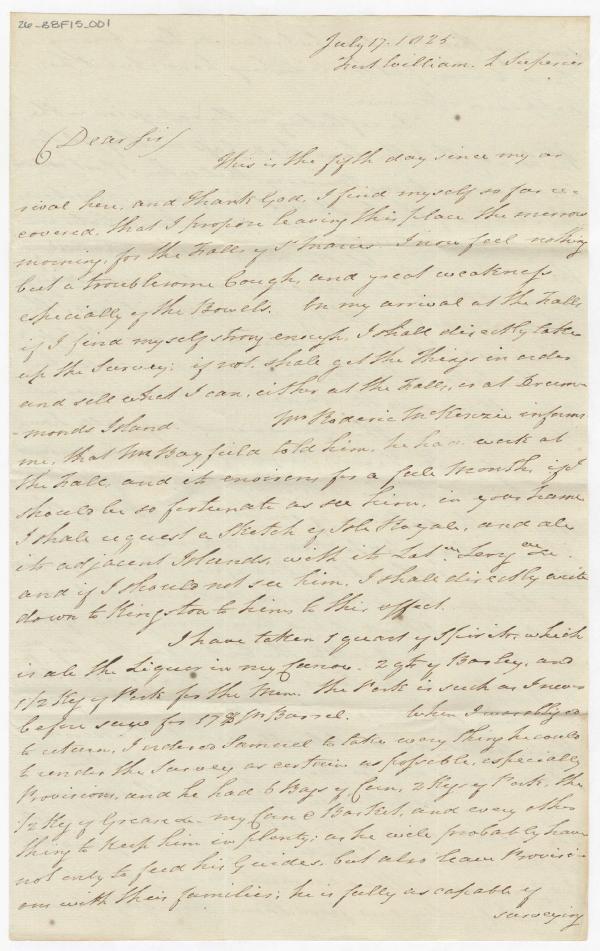 26-BBF15_001
July 17. 1825
Fort William. L Superior
Dear Sir
This is the fifth day since my ar
rival here, and thank God, I find myself so far re-
covered, that I propose leaving this place the morrow
morning, for the Falls of St Maries. I now feel nothing
but a troublesome Cough, and great weakness
especially of the Bowels. On my arrival at the Falls
if I find myself strong enough, I shall directly take
up the Survey; if not, shall get the Things in order
and sell what I can, either at the Falls, or at Drum-
-monds Island. Mr Roderic McKenzie informs
me, that Mr Bayfield told him, he had work at
the Falls and its environs for a full Month, if I
should be so fortunate as see him, in your name
I shall request a Sketch of Isle Royale, and all
its adjacent Islands, with its Latde Longde &c.
and if I should not see him, I shall directly write
down to Kingston to him to this effect.
I have taken 1 quart of Spirits, which
is all the Liquor in my Canoe. 2 gts of Barley, and
1 1/2 Kg of Pork for the Men. The Pork is such as I never
before saw for 17$ pr Barrel. When I was obliged
to return, I ordered Samuel to take every thing he could
to render the Survey as certain as possible, especially
Provisions, and he had 6 Bags of Corn, 2 Kegs of Pork, the
1/2 Kg of Grease &- my Cane Basket, and every other
thing to keep him in plenty; as he will probably have
not only to feed his Guides, but also leave Provisi-
ons with their families; he is fully as capable of
surveying